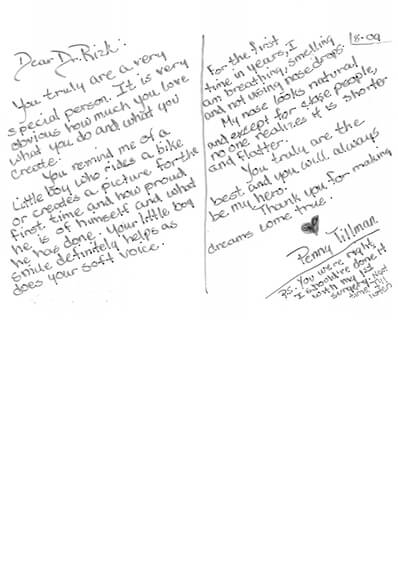 Dear Dr. Rizk:
You truly are a very
special person. It is very
obvious how much you love
what you do and what you
create.
You remind me of a
little boy who rides a bike
or creates a picture for the
first time and how proud
he is of himself and what
he has done. Your little boy
smile definitely helps as
does your soft voice.
8-09
For the first
time in years, I
am breathing, smelling
and not using nose drops.
My nose looks natural
and except for close people,
no one realizes it is shorter
and flatter.
You truly are the
best and you will always
be my hero.
Thank you for making
dreams come true.
Penny Tillman
P.S. You were right
I should've done it
with my 1st
surgery. Next
time I'll
listen